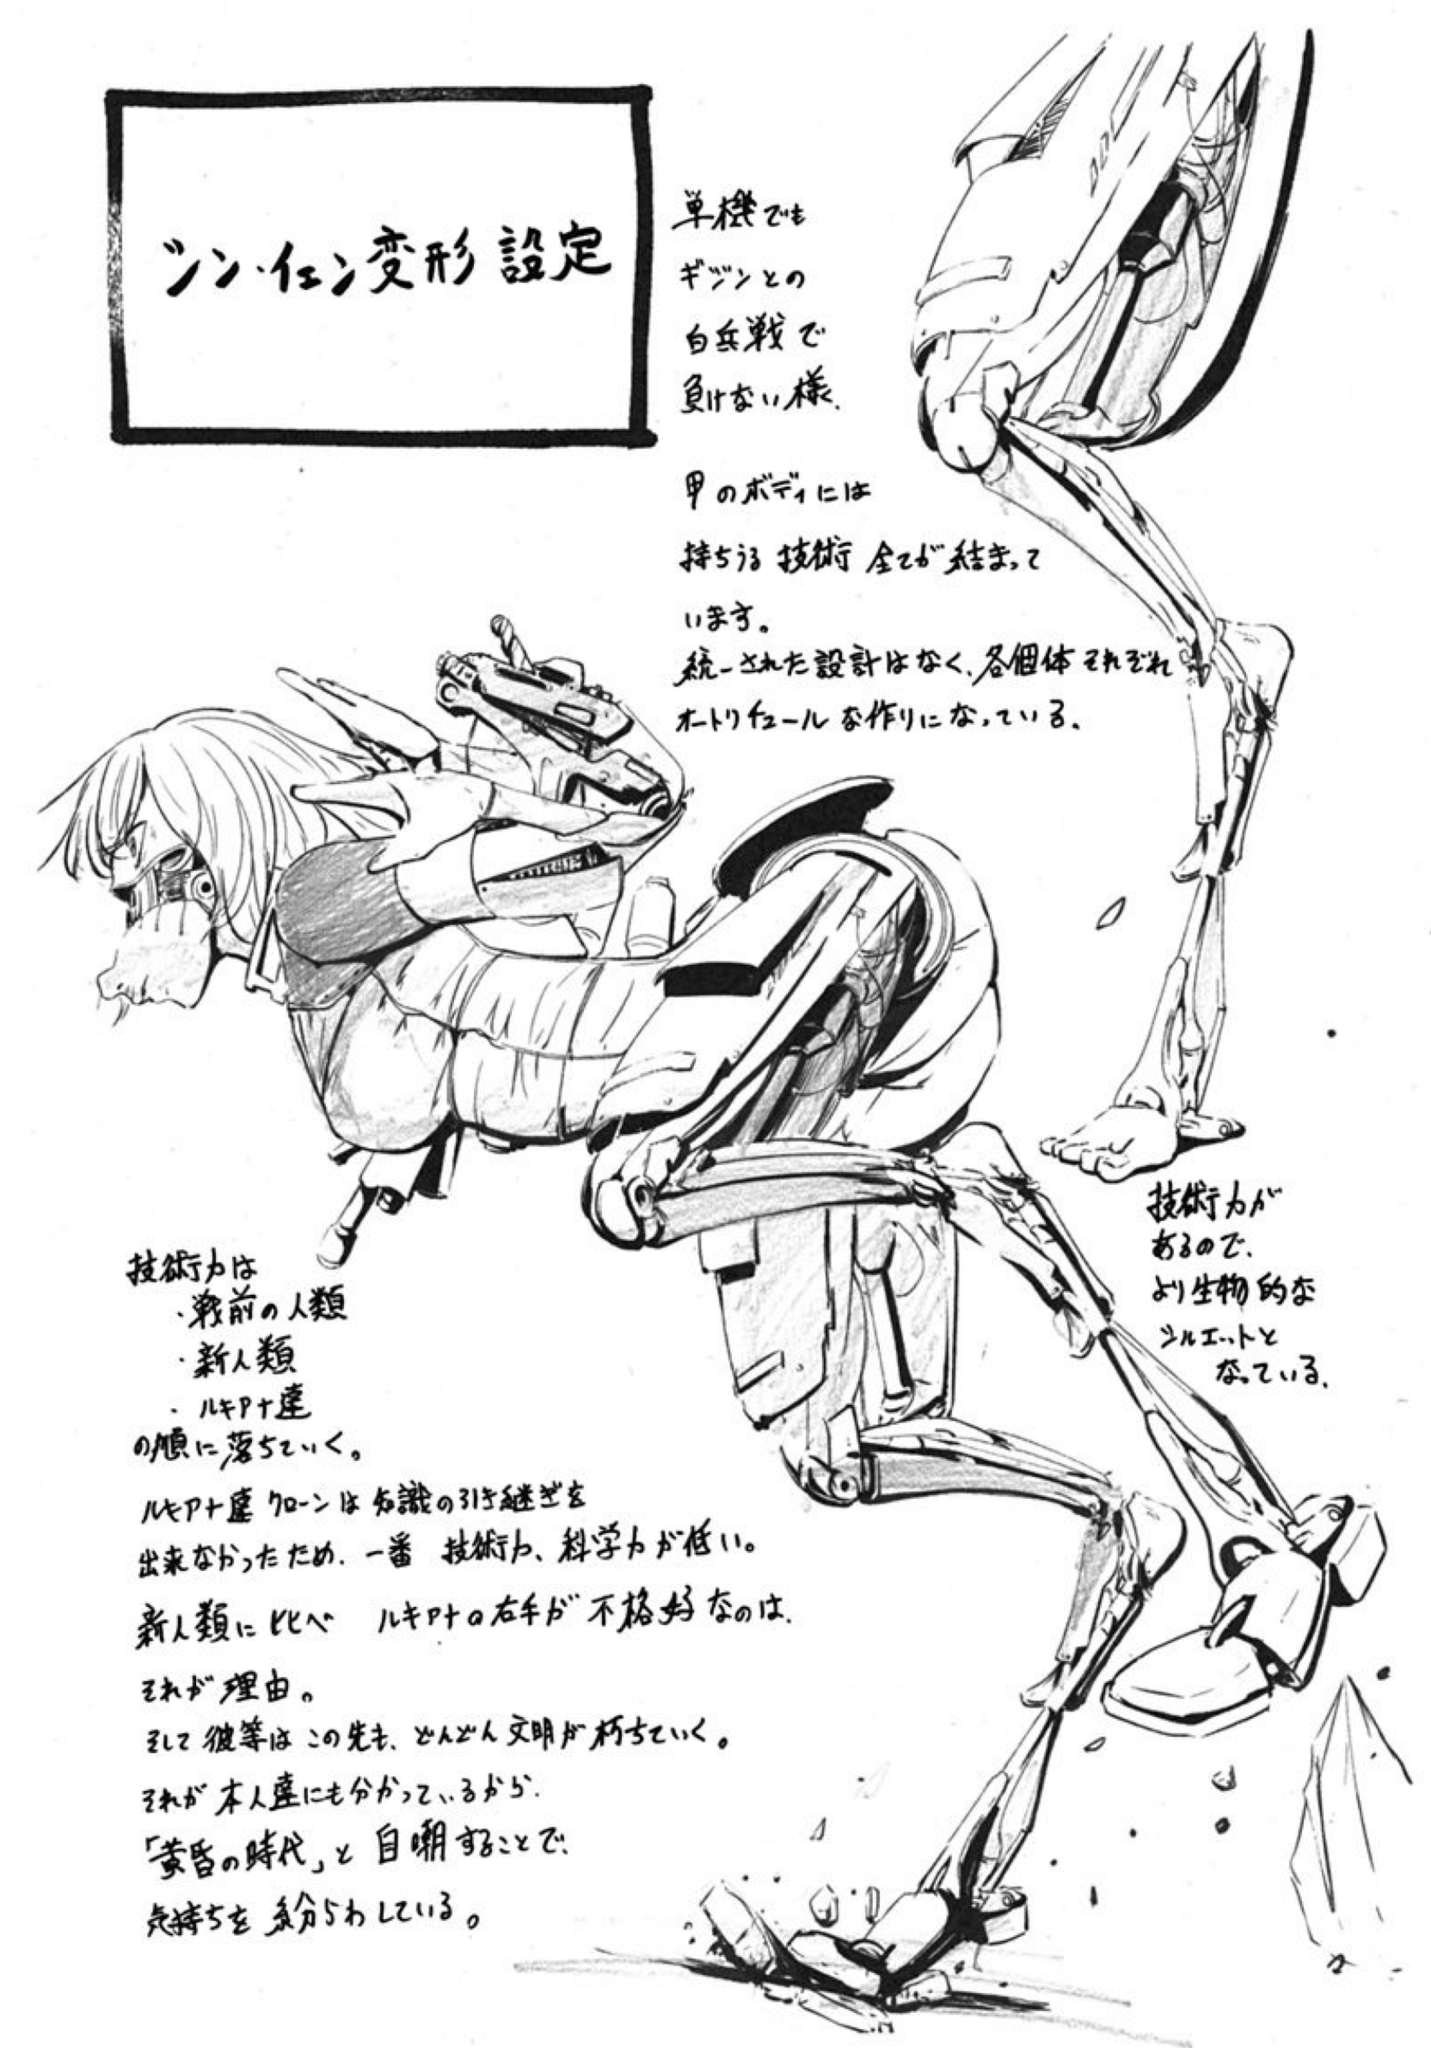 シン・イェン変形設定
単機でも
ギジンとの
白兵戦で
負けない様、
甲のボディには
持ちうる技術全てが結まって
います。
統一された設計はなく、各個体それぞれ
オートクチュールな作りになっている。
技術力が
あるので、
より生物的な
シルエットと
なっている。
技術力は
・戦前の人類
・新人類
・ルキアナ達
の順に落ちていく。
ルキアナ達クローンは知識の引き継ぎを
出来なかったため、一番 技術力、科学力が低い。
新人類に比べ ルキアナの右手が不格好なのは、
それが理由。
そして彼等はこの先も、どんどん文明が朽ちていく。
それが本人達にも分かっているから、
「黄昏の時代」と自嘲することで、
気持ちを紛らわしている。